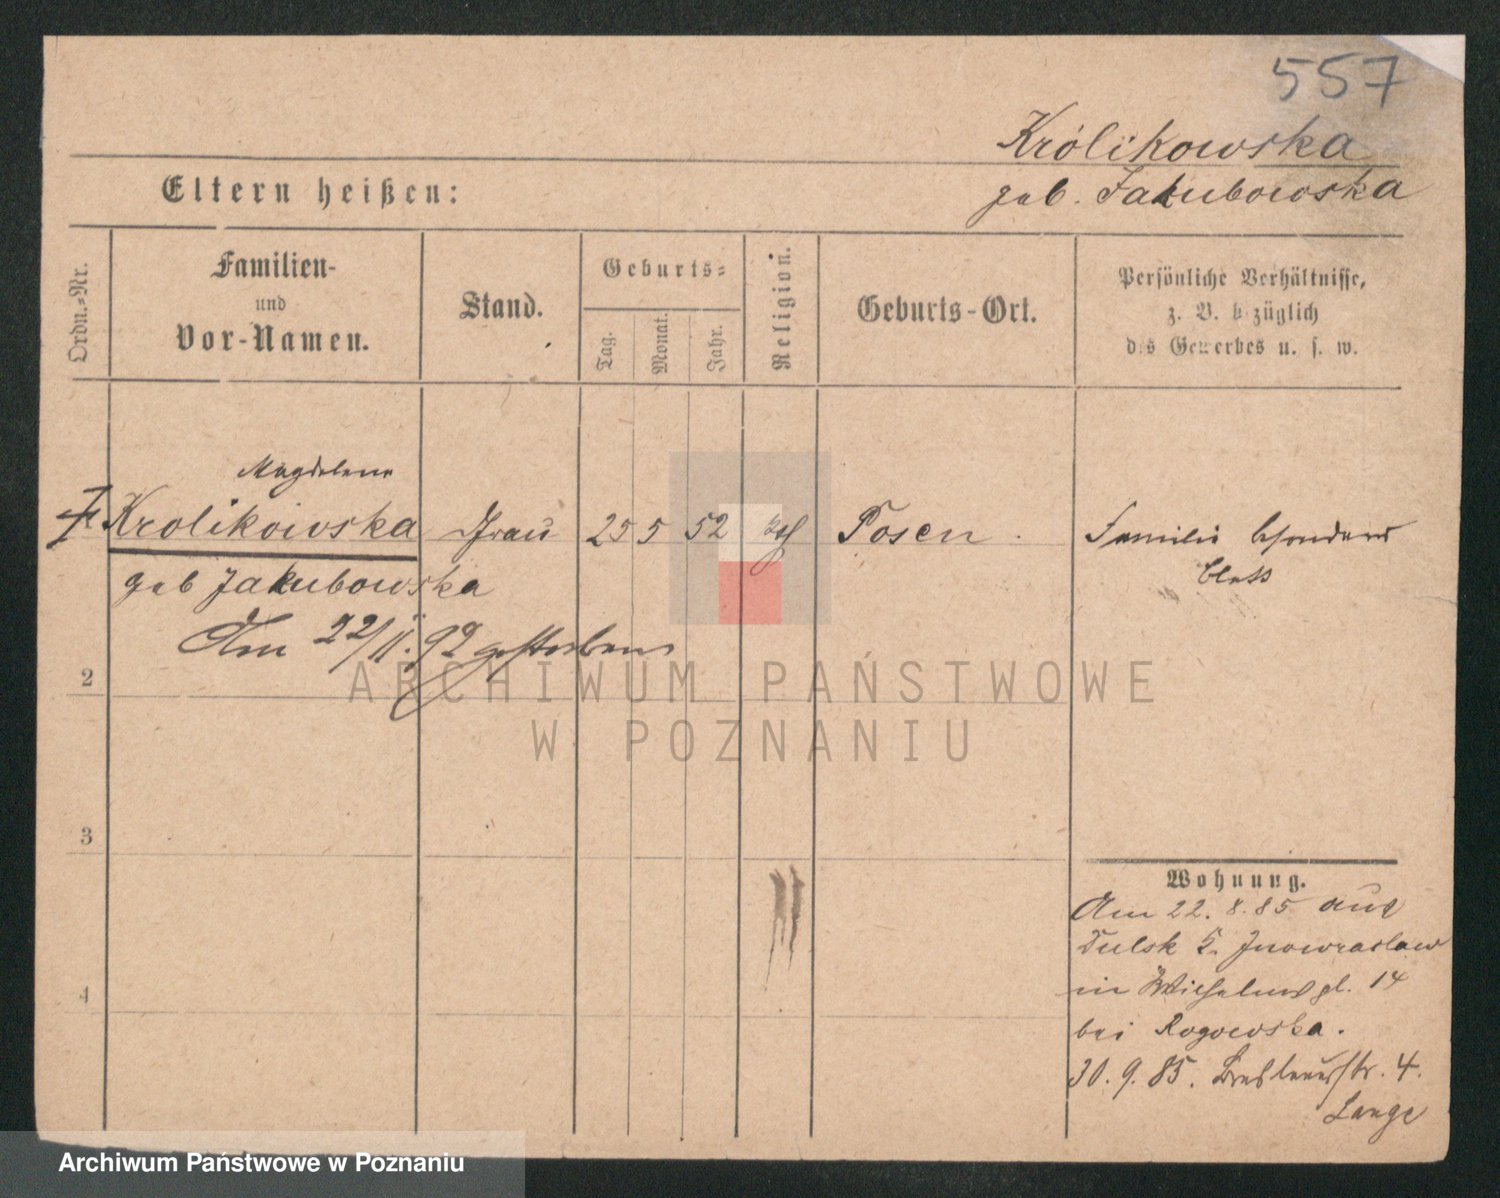 557
Królikowska
geb. Jakubowska
Eltern heißen:
Ordn.=Nr.
Familien-
und
Vor-Namen.
Stand.
Geburts=
Tag.
Monat.
Jahr.
Religion.
Geburts-Ort.
Persönliche Verhältnisse,
z. B. bezüglich
des Gewerbes u. s. w.
Magdalena
Krolikowska Frau 25 5 52 kth Posen.
geb Jakubowska
Familie besonders
Blatt
Am 22/II. 92 gestorben
2
3
4
Wohnung.
Am 22. 8. 85 aus
Tulsk K. Inowraclaw
in Wilhelmspl. 14
bei Rogowska.
30. 9. 85. Breslauerstr. 4.
Lange
ARCHIWUM PAŃSTWOWE
W POZNANIU
Archiwum Państwowe w Poznaniu